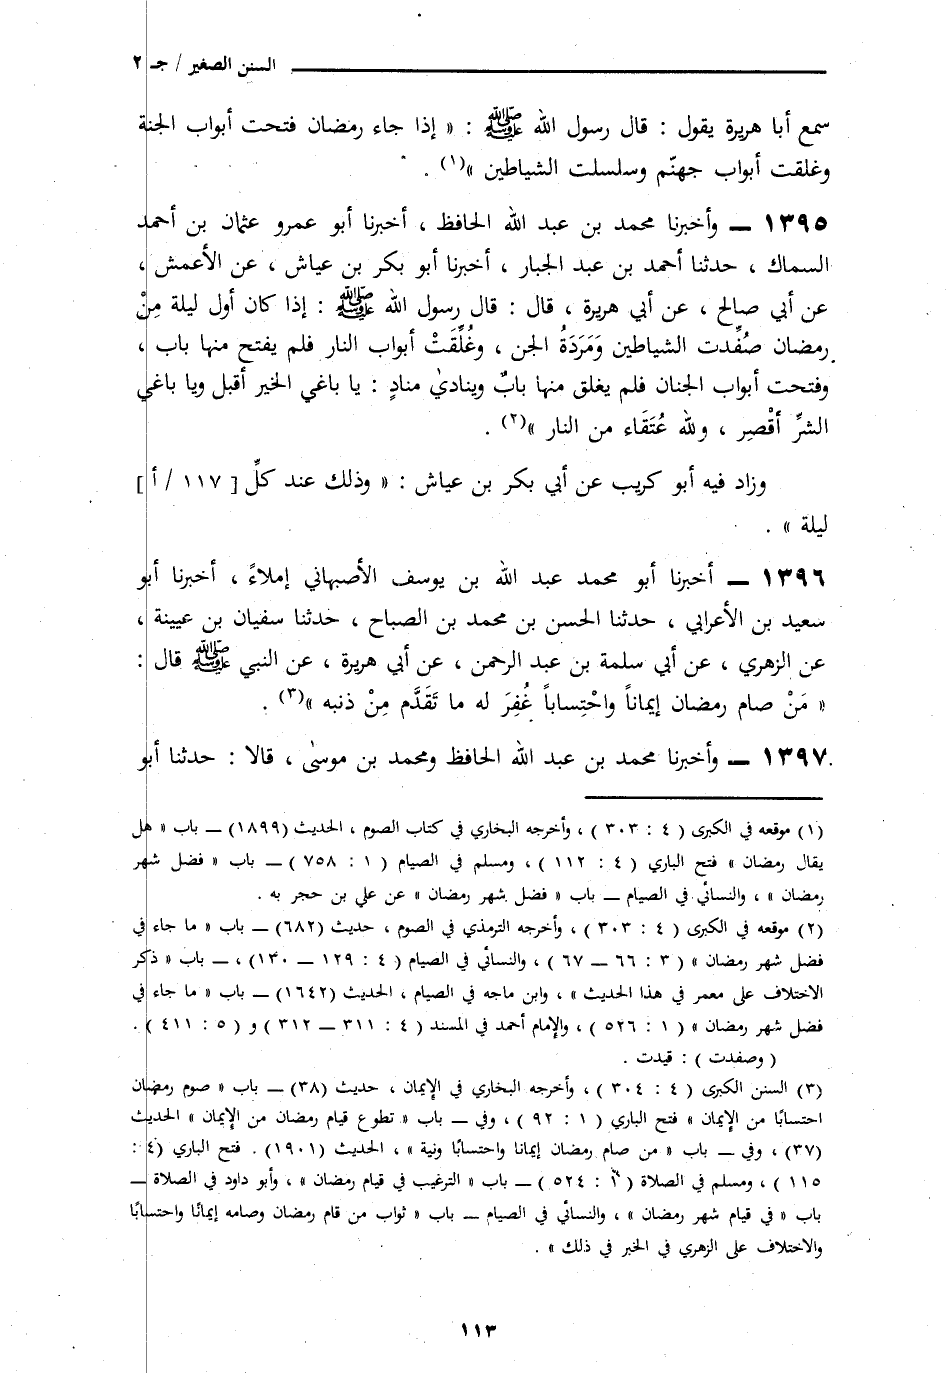 السنن الصغير / جـ ٢
سمع أبا هريرة يقول : قال رسول الله ﷺ : « إذا جاء رمضان فتحت أبواب الجنة
وغلقت أبواب جهنّم وسلسلت الشياطين »(١) .
١٣٩٥ ــ وأخبرنا محمد بن عبد الله الحافظ ، أخبرنا أبو عمرو عثمان بن أحمد
السماك ، حدثنا أحمد بن عبد الجبار ، أخبرنا أبو بكر بن عياش ، عن الأعمش ،
عن أبي صالح ، عن أبي هريرة ، قال : قال رسول الله ﷺ : إذا كان أول ليلة مِنْ
رمضان صُفِّدت الشياطين وَمَرَدَةُ الجن ، وغُلِّقَتْ أبواب النار فلم يفتح منها باب ،
وفتحت أبواب الجنان فلم يغلق منها بابٌ وينادىٰ منادٍ : يا باغي الخير أقبل ويا باغي
الشرِّ أقْصِر ، ولله عُتَقَاء من النار »(٢) .
وزاد فيه أبو كريب عن أبي بكر بن عياش : « وذلك عند كلِّ [ ١١٧ / أ ]
ليلة » .
١٣٩٦ ــ أخبرنا أبو محمد عبد الله بن يوسف الأصبهاني إملاءً ، أخبرنا أبو
سعيد بن الأعرابي ، حدثنا الحسن بن محمد بن الصباح ، حدثنا سفيان بن عيينة ،
عن الزهري ، عن أبي سلمة بن عبد الرحمن ، عن أبي هريرة ، عن النبي ﷺ قال :
« مَنْ صام رمضان إيماناً واحْتِساباً غُفِرَ له ما تَقَدَّم مِنْ ذنبه »(٣) .
١٣٩٧ ــ وأخبرنا محمد بن عبد الله الحافظ ومحمد بن موسىٰ ، قالا : حدثنا أبو
(١) موقعه في الكبرى ( ٤ : ٣٠٣ ) ، وأخرجه البخاري في كتاب الصوم ، الحديث (١٨٩٩) ــ باب « هل
يقال رمضان » فتح الباري ( ٤ : ١١٢ ) ، ومسلم في الصيام ( ١ : ٧٥٨ ) ــ باب « فضل شهر
رمضان » ، والنسائي في الصيام ــ باب « فضل شهر رمضان » عن علي بن حجر به .
(٢) موقعه في الكبرى ( ٤ : ٣٠٣ ) ، وأخرجه الترمذي في الصوم ، حديث (٦٨٢) ــ باب « ما جاء في
فضل شهر رمضان » ( ٣ : ٦٦ ــ ٦٧ ) ، والنسائي في الصيام ( ٤ : ١٢٩ ــ ١٣٠) ، ــ باب « ذكر
الاختلاف على معمر في هذا الحديث » ، وابن ماجه في الصيام ، الحديث (١٦٤٢) ــ باب « ما جاء في
فضل شهر رمضان » ( ١ : ٥٢٦ ) ، والإمام أحمد في المسند ( ٤ : ٣١١ ــ ٣١٢ ) و ( ٥ : ٤١١ ) .
( وصفدت ) : قيدت .
(٣) السنن الكبرى ( ٤ : ٣٠٤ ) ، وأخرجه البخاري في الإيمان ، حديث (٣٨) ــ باب « صوم رمضان
احتسابًا من الإيمان » فتح الباري ( ١ : ٩٢ ) ، وفي ــ باب « تطوع قيام رمضان من الإيمان » الحديث
(٣٧) ، وفي ــ باب « من صام رمضان إيمانا واحتسابًا ونية » ، الحديث (١٩٠١) . فتح الباري (٤ :
١١٥ ) ، ومسلم في الصلاة ( ١ : ٥٢٤ ) ــ باب « الترغيب في قيام رمضان » ، وأبو داود في الصلاة ــ
باب « في قيام شهر رمضان » ، والنسائي في الصيام ــ باب « ثواب من قام رمضان وصامه إيمانًا واحتسابًا
والاختلاف على الزهري في الخبر في ذلك » .
١١٣